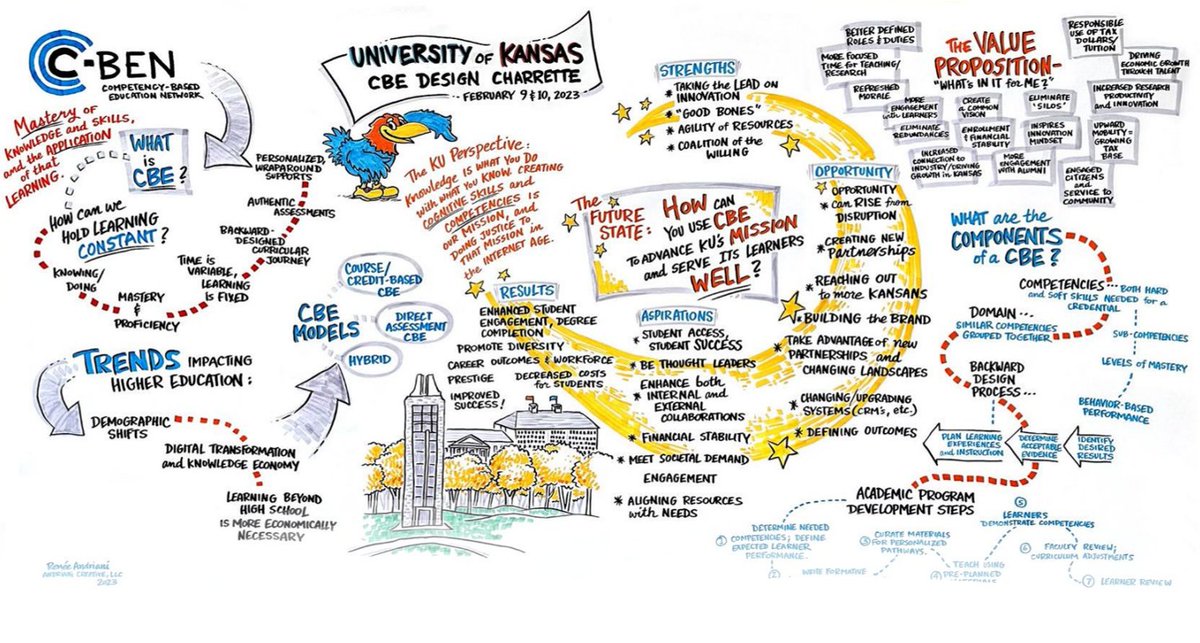 C-BEN
COMPETENCY-BASED
EDUCATION NETWORK
Mastery of
KNOWLEDGE and SKILLS,
and the APPLICATION
of that
LEARNING.
WHAT
is
CBE?
HOW can we
HOLD LEARNING
CONSTANT?
PERSONALIZED,
WRAPAROUND
SUPPORTS
AUTHENTIC
ASSESSMENTS
BACKWARD-
DESIGNED
CURRICULAR
JOURNEY
TIME is
VARIABLE,
LEARNING
is FIXED
MASTERY
&
PROFICIENCY
KNOWING/
DOING
TRENDS IMPACTING
HIGHER EDUCATION:
DEMOGRAPHIC
SHIFTS
DIGITAL TRANSFORMATION
and KNOWLEDGE ECONOMY
LEARNING BEYOND
HIGH SCHOOL
IS MORE ECONOMICALLY
NECESSARY
Renée Andriani
ANDRIANI CREATIVE, LLC
2023
UNIVERSITY of KANSAS
CBE DESIGN CHARRETTE
FEBRUARY 9 & 10, 2023
The KU PERSPECTIVE:
KNOWLEDGE IS WHAT YOU DO
with WHAT YOU KNOW. CREATING
COGNITIVE SKILLS and
COMPETENCIES IS
OUR MISSION, and
DOING JUSTICE TO
THAT MISSION in
the INTERNET AGE.
CBE
MODELS
COURSE/
CREDIT-BASED
CBE
DIRECT
ASSESSMENT
CBE
HYBRID
RESULTS
ENHANCED STUDENT
ENGAGEMENT, DEGREE
COMPLETION
PROMOTE DIVERSITY
CAREER OUTCOMES & WORKFORCE
PRESTIGE
DECREASED COSTS
for STUDENTS
IMPROVED
SUCCESS!
The
FUTURE
STATE:
HOW CAN
YOU USE CBE
TO ADVANCE KU'S MISSION
and SERVE ITS LEARNERS
WELL?
STRENGTHS
* TAKING the LEAD ON
INNOVATION
* "GOOD BONES"
* AGILITY of RESOURCES
* COALITION of the
WILLING
OPPORTUNITY
* OPPORTUNITY
CAN RISE from
DISRUPTION
* CREATING NEW
PARTNERSHIPS
* REACHING OUT
to more KANSANS
* BUILDING the BRAND
* TAKE ADVANTAGE of new
PARTNERSHIPS and
CHANGING LANDSCAPES
* CHANGING/UPGRADING
SYSTEMS (CRM's, etc.)
* DEFINING OUTCOMES
ASPIRATIONS
* STUDENT ACCESS,
STUDENT SUCCESS
* BE THOUGHT LEADERS
* ENHANCE both
INTERNAL and
EXTERNAL
COLLABORATIONS
* FINANCIAL STABILITY
* MEET SOCIETAL DEMAND
ENGAGEMENT
* ALIGNING RESOURCES
with NEEDS
The VALUE
PROPOSITION-
"WHAT'S IN IT for ME?"
BETTER DEFINED
ROLES & DUTIES
MORE FOCUSED
TIME for TEACHING/
RESEARCH
REFRESHED
MORALE
MORE
ENGAGEMENT
with LEARNERS
CREATE
a COMMON
VISION
ELIMINATE
'SILOS'
ELIMINATE
REDUNDANCIES
ENROLLMENT
& FINANCIAL
STABILITY
INSPIRES
INNOVATION
MINDSET
INCREASED
CONNECTION TO
INDUSTRY/DRIVING
GROWTH IN KANSAS
MORE
ENGAGEMENT
with ALUMNI
RESPONSIBLE
USE OF TAX
DOLLARS/
TUITION
DRIVING
ECONOMIC GROWTH
THROUGH TALENT
INCREASED RESEARCH
PRODUCTIVITY
and INNOVATION
UPWARD
MOBILITY =
GROWING
TAX
BASE
ENGAGED
CITIZENS
and
SERVICE to
COMMUNITY
WHAT are the
COMPONENTS
of a CBE?
COMPETENCIES...
BOTH HARD
and SOFT SKILLS NEEDED for a
CREDENTIAL
DOMAIN...
SIMILAR COMPETENCIES
GROUPED TOGETHER
SUB-COMPETENCIES
LEVELS of MASTERY
BEHAVIOR-BASED
PERFORMANCE
BACKWARD
DESIGN
PROCESS...
PLAN LEARNING
EXPERIENCES
and INSTRUCTION
DETERMINE
ACCEPTABLE
EVIDENCE
IDENTIFY
DESIRED
RESULTS
ACADEMIC PROGRAM
DEVELOPMENT STEPS
1 DETERMINE NEEDED
COMPETENCIES; DEFINE
EXPECTED LEARNER
PERFORMANCE.
2 WRITE FORMATIVE
3 CURATE MATERIALS
FOR PERSONALIZED
PATHWAYS.
4 TEACH USING
PRE-PLANNED
5 LEARNERS
DEMONSTRATE COMPETENCIES
6 FACULTY REVIEW;
CURRICULUM ADJUSTMENTS
7 LEARNER REVIEW